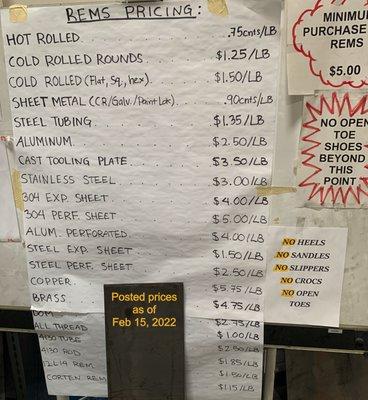 REMS PRICING:
HOT ROLLED .75cnts/LB
COLD ROLLED ROUNDS $1.25/LB
COLD ROLLED (Flat, Sq., hex) $1.50/LB
SHEET METAL (CR/Galv./Paint Lok) .90cnts/LB
STEEL TUBING $1.35/LB
ALUMINUM $2.50/LB
CAST TOOLING PLATE $3.50/LB
STAINLESS STEEL $3.00/LB
304 EXP. SHEET $4.00/LB
304 PERF. SHEET $5.00/LB
ALUM. PERFORATED $4.00/LB
STEEL EXP. SHEET $1.50/LB
STEEL PERF. SHEET $2.50/LB
COPPER $5.75/LB
BRASS $4.75/LB
DOM $2.75/LB
ALL THREAD $1.00/LB
4130 TUBE $2.50/LB
4130 ROD $1.85/LB
12L14 REM $1.50/LB
CORTEN REM $1.15/LB
Posted prices
as of
Feb 15, 2022
MINIMUM
PURCHASE
REMS
$5.00
NO OPEN
TOE
SHOES
BEYOND
THIS
POINT
NO HEELS
NO SANDLES
NO SLIPPERS
NO CROCS
NO OPEN
TOES